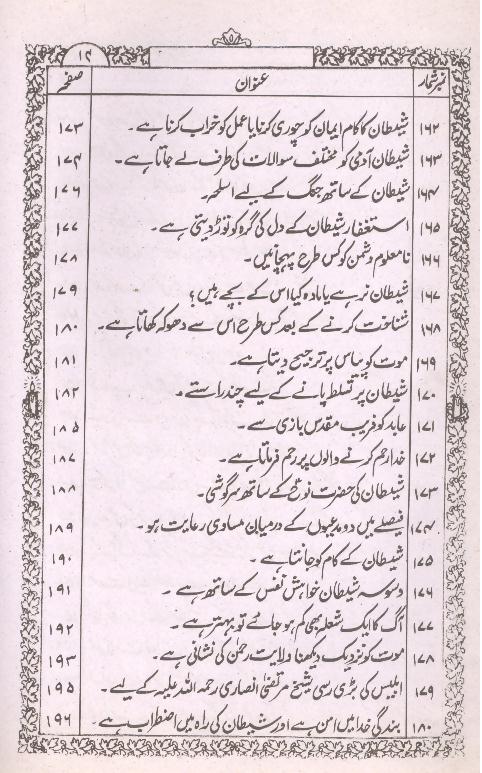 ۱۴
نمبر شمار عنوان صفحہ
۱۶۲ شیطان کا کام ایمان کو چوری کرنا یا عمل کو خراب کرنا ہے۔ ۱۷۳
۱۶۳ شیطان آدمی کو مختلف سوالات کی طرف لے جاتا ہے۔ ۱۷۴
۱۶۴ شیطان کے ساتھ جنگ کے لیے اسلحہ۔ ۱۷۶
۱۶۵ استغفار شیطان کے دل کی گرہ کو توڑ دیتی ہے۔ ۱۷۷
۱۶۶ نامعلوم دشمن کو کس طرح پہچانیں۔ ۱۷۸
۱۶۷ شیطان نر ہے یا مادہ کیا اس کے بچے ہیں؟ ۱۷۹
۱۶۸ شناخت کرنے کے بعد کس طرح اس سے دھوکہ کھاتا ہے۔ ۱۸۰
۱۶۹ موت کو پیاس پر ترجیح دیتا ہے۔ ۱۸۱
۱۷۰ شیطان پر تسلط پانے کے لیے چند راستے۔ ۱۸۲
۱۷۱ عابد کو فریب مقدس بازی سے۔ ۱۸۵
۱۷۲ خدا رحم کرنے والوں پر رحم فرماتا ہے۔ ۱۸۷
۱۷۳ شیطان کی حضرت نوحؑ کے ساتھ سرگوشی۔ ۱۸۸
۱۷۴ فیصلے میں دو مدعیوں کے درمیان مساوی رعایت ہو۔ ۱۸۹
۱۷۵ شیطان کے کام کو جانتا ہے۔ ۱۹۰
۱۷۶ وسوسہ شیطان خواہش نفس کے ساتھ ہے۔ ۱۹۱
۱۷۷ آگ کا ایک شعلہ بھی کم ہو جائے تو بہتر ہے۔ ۱۹۲
۱۷۸ موت کو نزدیک دیکھنا ولایت رحمٰن کی نشانی ہے۔ ۱۹۳
۱۷۹ ابلیس کی بڑی رسی شیخ مرتضیٰ انصاری رحمہ اللہ علیہ کے لیے۔ ۱۹۵
۱۸۰ بندگی خدا میں امن ہے اور شیطان کی راہ میں اضطراب ہے۔ ۱۹۶